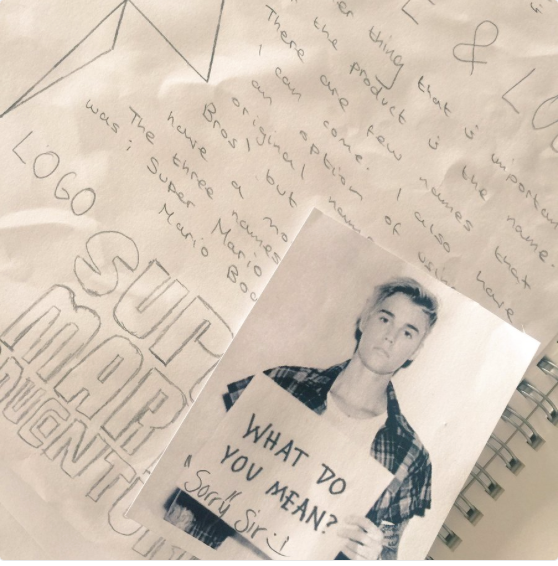 E & LO
er thing that is important
the product is the name.
There are few names that
I can come. I also have
an option of using
original
Bros, but
have a
The three names
was; Super Mario
Mario
LOGO
SUP
MAR
ADVENTU
WHAT DO
YOU MEAN?
"Sorry Sir :)